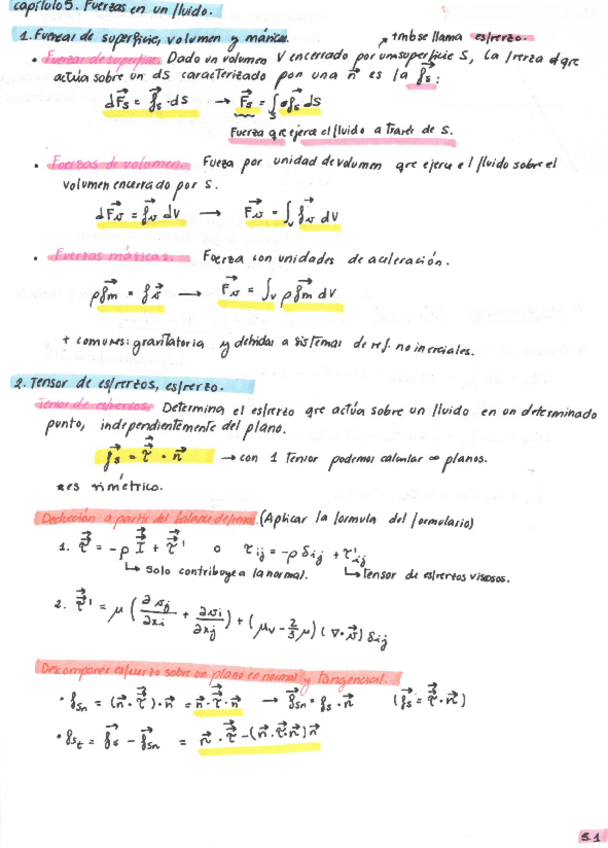 capítulo 5. Fuerzas en un fluido.
1. Fuerzas de superficie, volumen y másica.
tmb se llama esfrerzo.
• Fuerzas de superficie. Dado un volumen V encerrado por una superficie S, la frerza dque
actúa sobre un ds caracterizado por una n⃗ es la f⃗s:
dF⃗s = f⃗s · ds → F⃗s = ∫s f⃗s ds
Fuerza que ejerce el fluido a través de S.
• Fuerzas de volumen. Fueza por unidad de volumen que ejerce el fluido sobre el
volumen encerrado por S.
dF⃗v = f⃗v dV → F⃗v = ∫v f⃗v dV
• Fuerzas másicas. Fuerza con unidades de aceleración.
ρf⃗m = f⃗v → F⃗v = ∫v ρf⃗m dV
+ comunes: gravitatoria y debidas a sistemas de ref. no inerciales.
2. Tensor de esfrerzos, esfrerzo.
Tensor de esfuerzos. Determina el esfrerzo que actúa sobre un fluido en un determinado
punto, independientemente del plano.
f⃗s = τ⃗⃗ · n⃗ → con 1 Tensor podemos calcular ∞ planos.
* es simétrico.
Deducción a partir del balance de (Aplicar la formula del formulario)
1. τ⃗⃗ = -p I⃗⃗ + τ⃗⃗' o τij = -p δij + τ'ij
↳ solo contribuye a la normal. ↳ Tensor de esfrerzos viscosos.
2. τ⃗⃗' = μ (∂vj/∂xi + ∂vi/∂xj) + (μv - 2/3 μ) (∇·v⃗) δij
Descomponer esfuerzo sobre un plano en normal y tangencial.
• fsn = (n⃗ · τ⃗⃗) · n⃗ = n⃗ · τ⃗⃗ · n⃗ → f⃗sn = fs · n⃗ (f⃗s = τ⃗⃗ · n⃗)
• fst = f⃗s - f⃗sn = n⃗ · τ⃗⃗ - (n⃗ · τ⃗⃗ · n⃗) n⃗
5.1